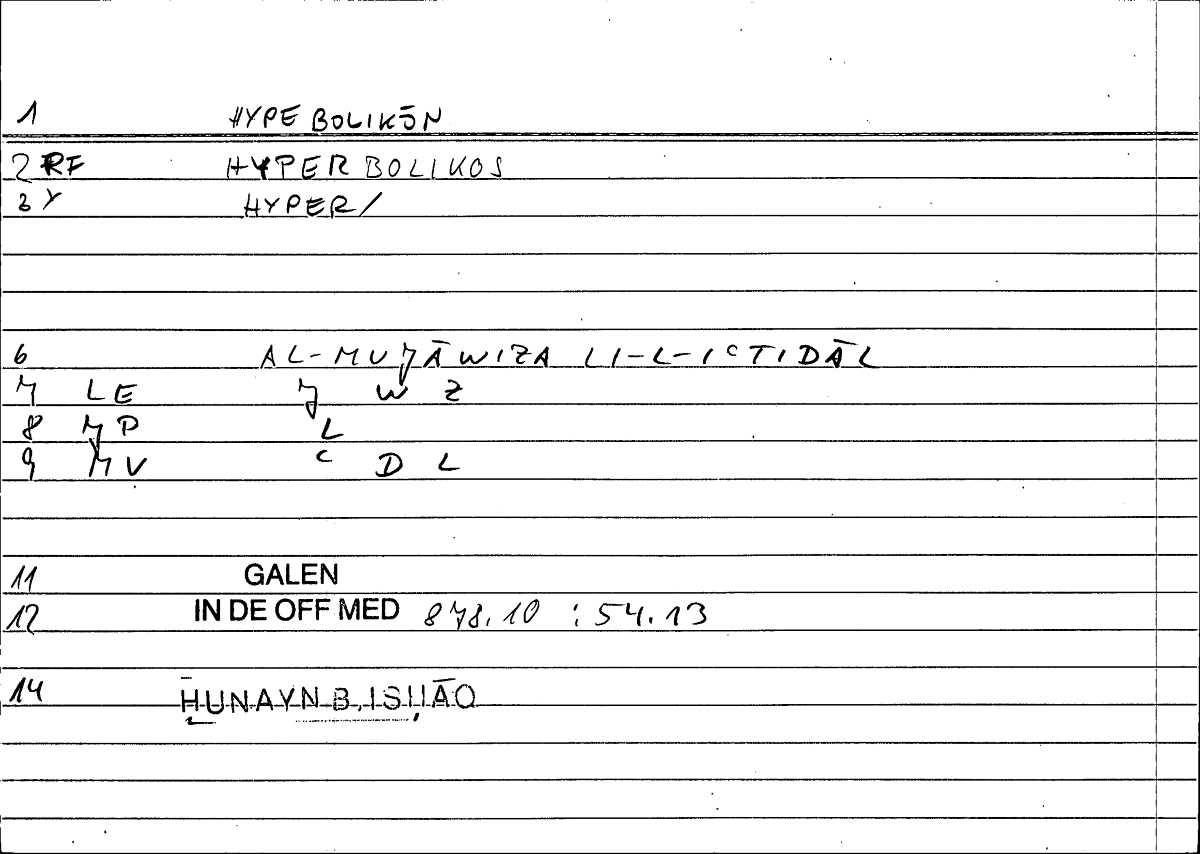 1 HYPEBOLIKŌN
2 RF HYPERBOLIKOS
3 Y HYPER/
6 AL-MUJĀWIZA LI-L-IᶜTIDĀL
7 LE J W Z
8 JP L
9 MV ᶜ D L
11 GALEN
12 IN DE OFF MED 878.10 : 54.13
14 HUNAYN B. ISḤĀQ